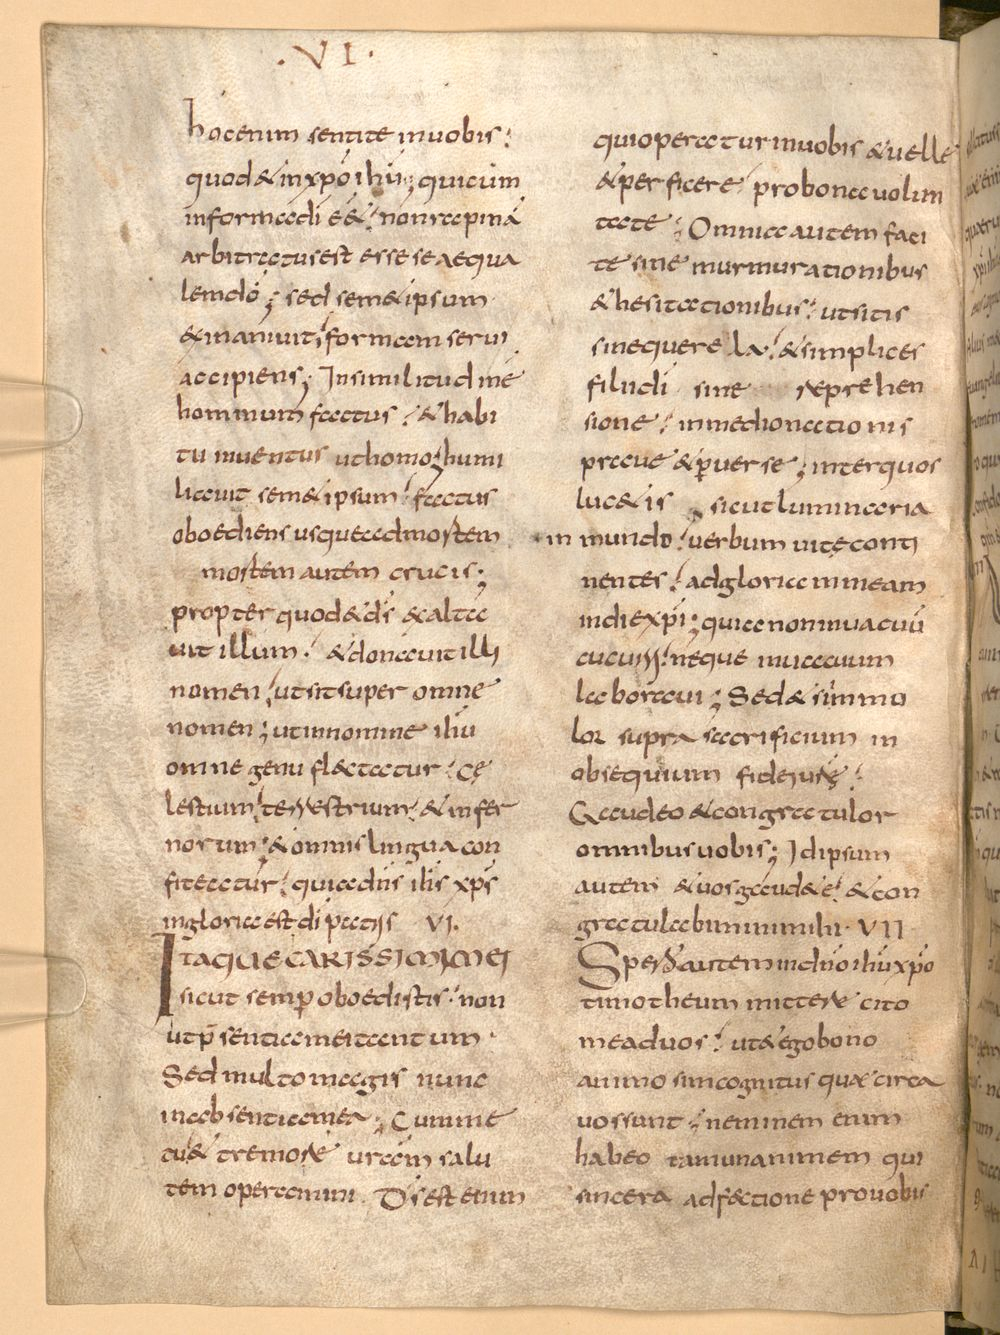 ·VI·
hoc enim sentite in uobis;
quod & in xpō ihū; qui cum
in forma di eē&; non rapinā
arbitratus est esse se aequa
lem dō; sed sem&ipsum
&inaniuit; formam serui
accipiens; In similitudinē
hominum factus; & habi
tu inuentus ut homo; humi
liauit sem&ipsum; factus
oboediens usque ad mortem
mortem autem crucis;
propter quod & ds̄ & alta
uit illum; & donauit illi
nomen; ut sit super omne
nomen; ut in nomine ihū
omne genu flectatur; cę
lestium; terrestrium; & infer
norum; & omnis lingua con
fiteatur; quia dns̄ ihs̄ xps̄
in gloria est di patris VI.
ITAQUE CARISSIMI MEI
sicut semp oboedistis; non
ut p̄sentia mei tantum·
Sed multo magis nunc
in absentia mea; Cum me
tu & tremore uram̄ salu
tem operamini. Ds̄ est enim
qui operatur in uobis & uelle
& perficere; pro bona uolun
tate; Omnia autem faci
te sine murmurationibus
& hesitationibus; ut sitis
sine querela; & simplices
filii di sine reprehen
sione; in medio nationis
praue & puerse; inter quos
luc&is; sicut luminaria
in mundo; uerbum uitę conti
nentes; ad gloriam meam
in die xpi; quia non in uacuū
cucurri; neque in uacuum
laboraui; Sed & si immo
lor supra sacrificium in
obsequium fidei urę;
Gaudeo & congratulor
omnibus uobis; Idipsum
autem & uos gaud&e; & con
gratulabimini mihi· VII
Spero autem in dnō ihū xpō
timotheum mittere cito
me ad uos; ut & ego bono
animo sim cognitus quae circa
uos sunt; neminem enim
habeo tam unanimem qui
sincera adfectione pro uobis